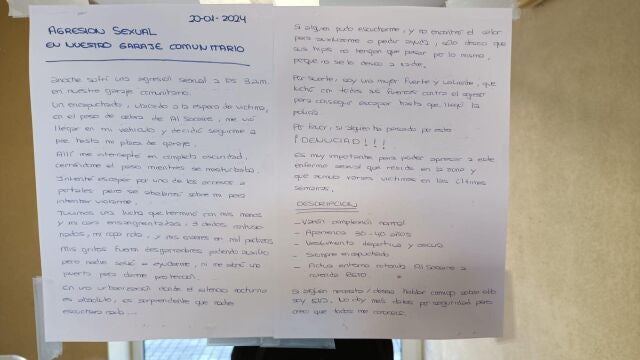 20-01-2024
AGRESION SEXUAL
EN NUESTRO GARAJE COMUNITARIO
Anoche sufrí una agresión sexual a las 3 a.m.
en nuestro garaje comunitario.
Un encapuchado, ubicado a la espera de víctima,
en el paso de cebra de Al Sacare, me vió
llegar en mi vehículo y decidió seguirme a
pie hasta mi plaza de garaje.
Allí me interceptó en completa oscuridad,
cerrándome el paso mientras se masturbaba.
Intenté escapar por uno de los accesos a
portales pero se abalanzó sobre mí para
intentar violarme.
Tuvimos una lucha que terminó con mis manos
y mi cara ensangrentadas, 3 dedos
mi ropa rota, y mis enseres en mil pedazos
Mis gritos fueron desgarradores pidiendo auxilio
pero nadie salió a ayudarme, ni me abrió una
puerta para darme protección.
En una urbanización donde el silencio nocturno
es absoluto, es sorprendente que nadie
escuchara nada...
Si alguien pudo escucharme, y no encontró el valor
para auxiliarme o pedir ayuda, sólo deseo que
sus hijas no tengan que pasar por lo mismo,
porque no se lo deseo a nadie.
Por suerte, soy una mujer fuerte y valiente, que
luchó con todas sus fuerzas contra el agresor
para conseguir escapar hasta que llegó la
policía.
Por favor, si alguien ha pasado por esto
¡DENUNCIAD!!!
Es muy importante para poder apresar a este
enfermo sexual que reside en la zona y
que varias víctimas en las últimas
semanas.
DESCRIPCION
- Varón complexión normal
- Apariencia 30-40 años
- Vestimenta deportiva y oscura
- Siempre encapuchado
- Actúa entorno rotonda Al Sacare a
rotonda
Si alguien necesita / desea hablar conmigo sobre ello
soy No doy más datos por seguridad pero
creo que todos me conocéis.